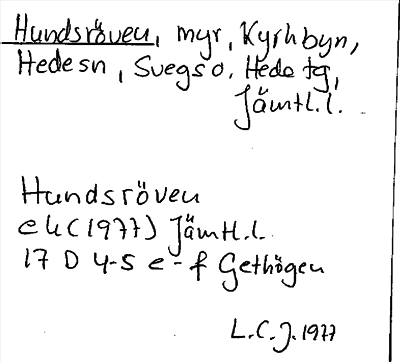 Hundsröven, myr, Kyrkbyn,
Hede sn, Svegs o. Hede tg,
Jämtl.l.
Hundsröven
ek (1977) Jämtl.l.
17 D 4-5 e-f Gethögen
L.C.J. 1977